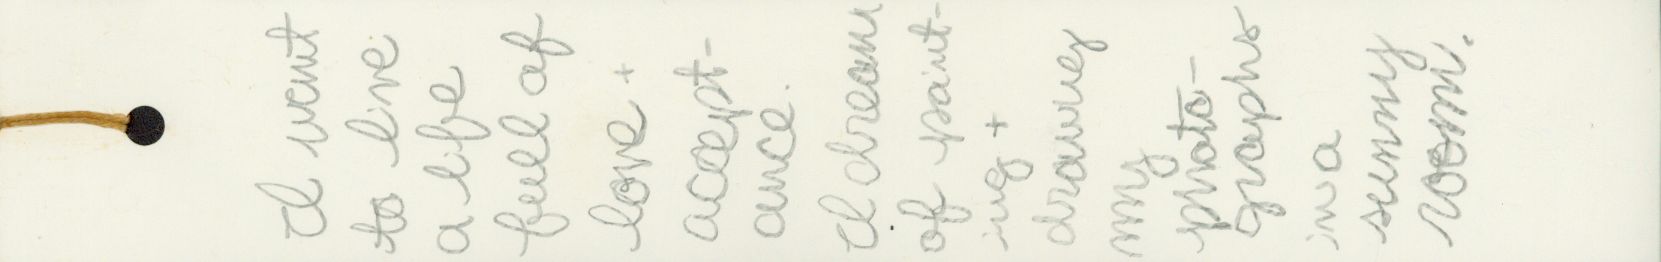 I want
to live
a life
full of
love +
accept-
ance.
I dream
of paint-
ing +
drawing
my
photo-
graphs
in a
sunny
room.